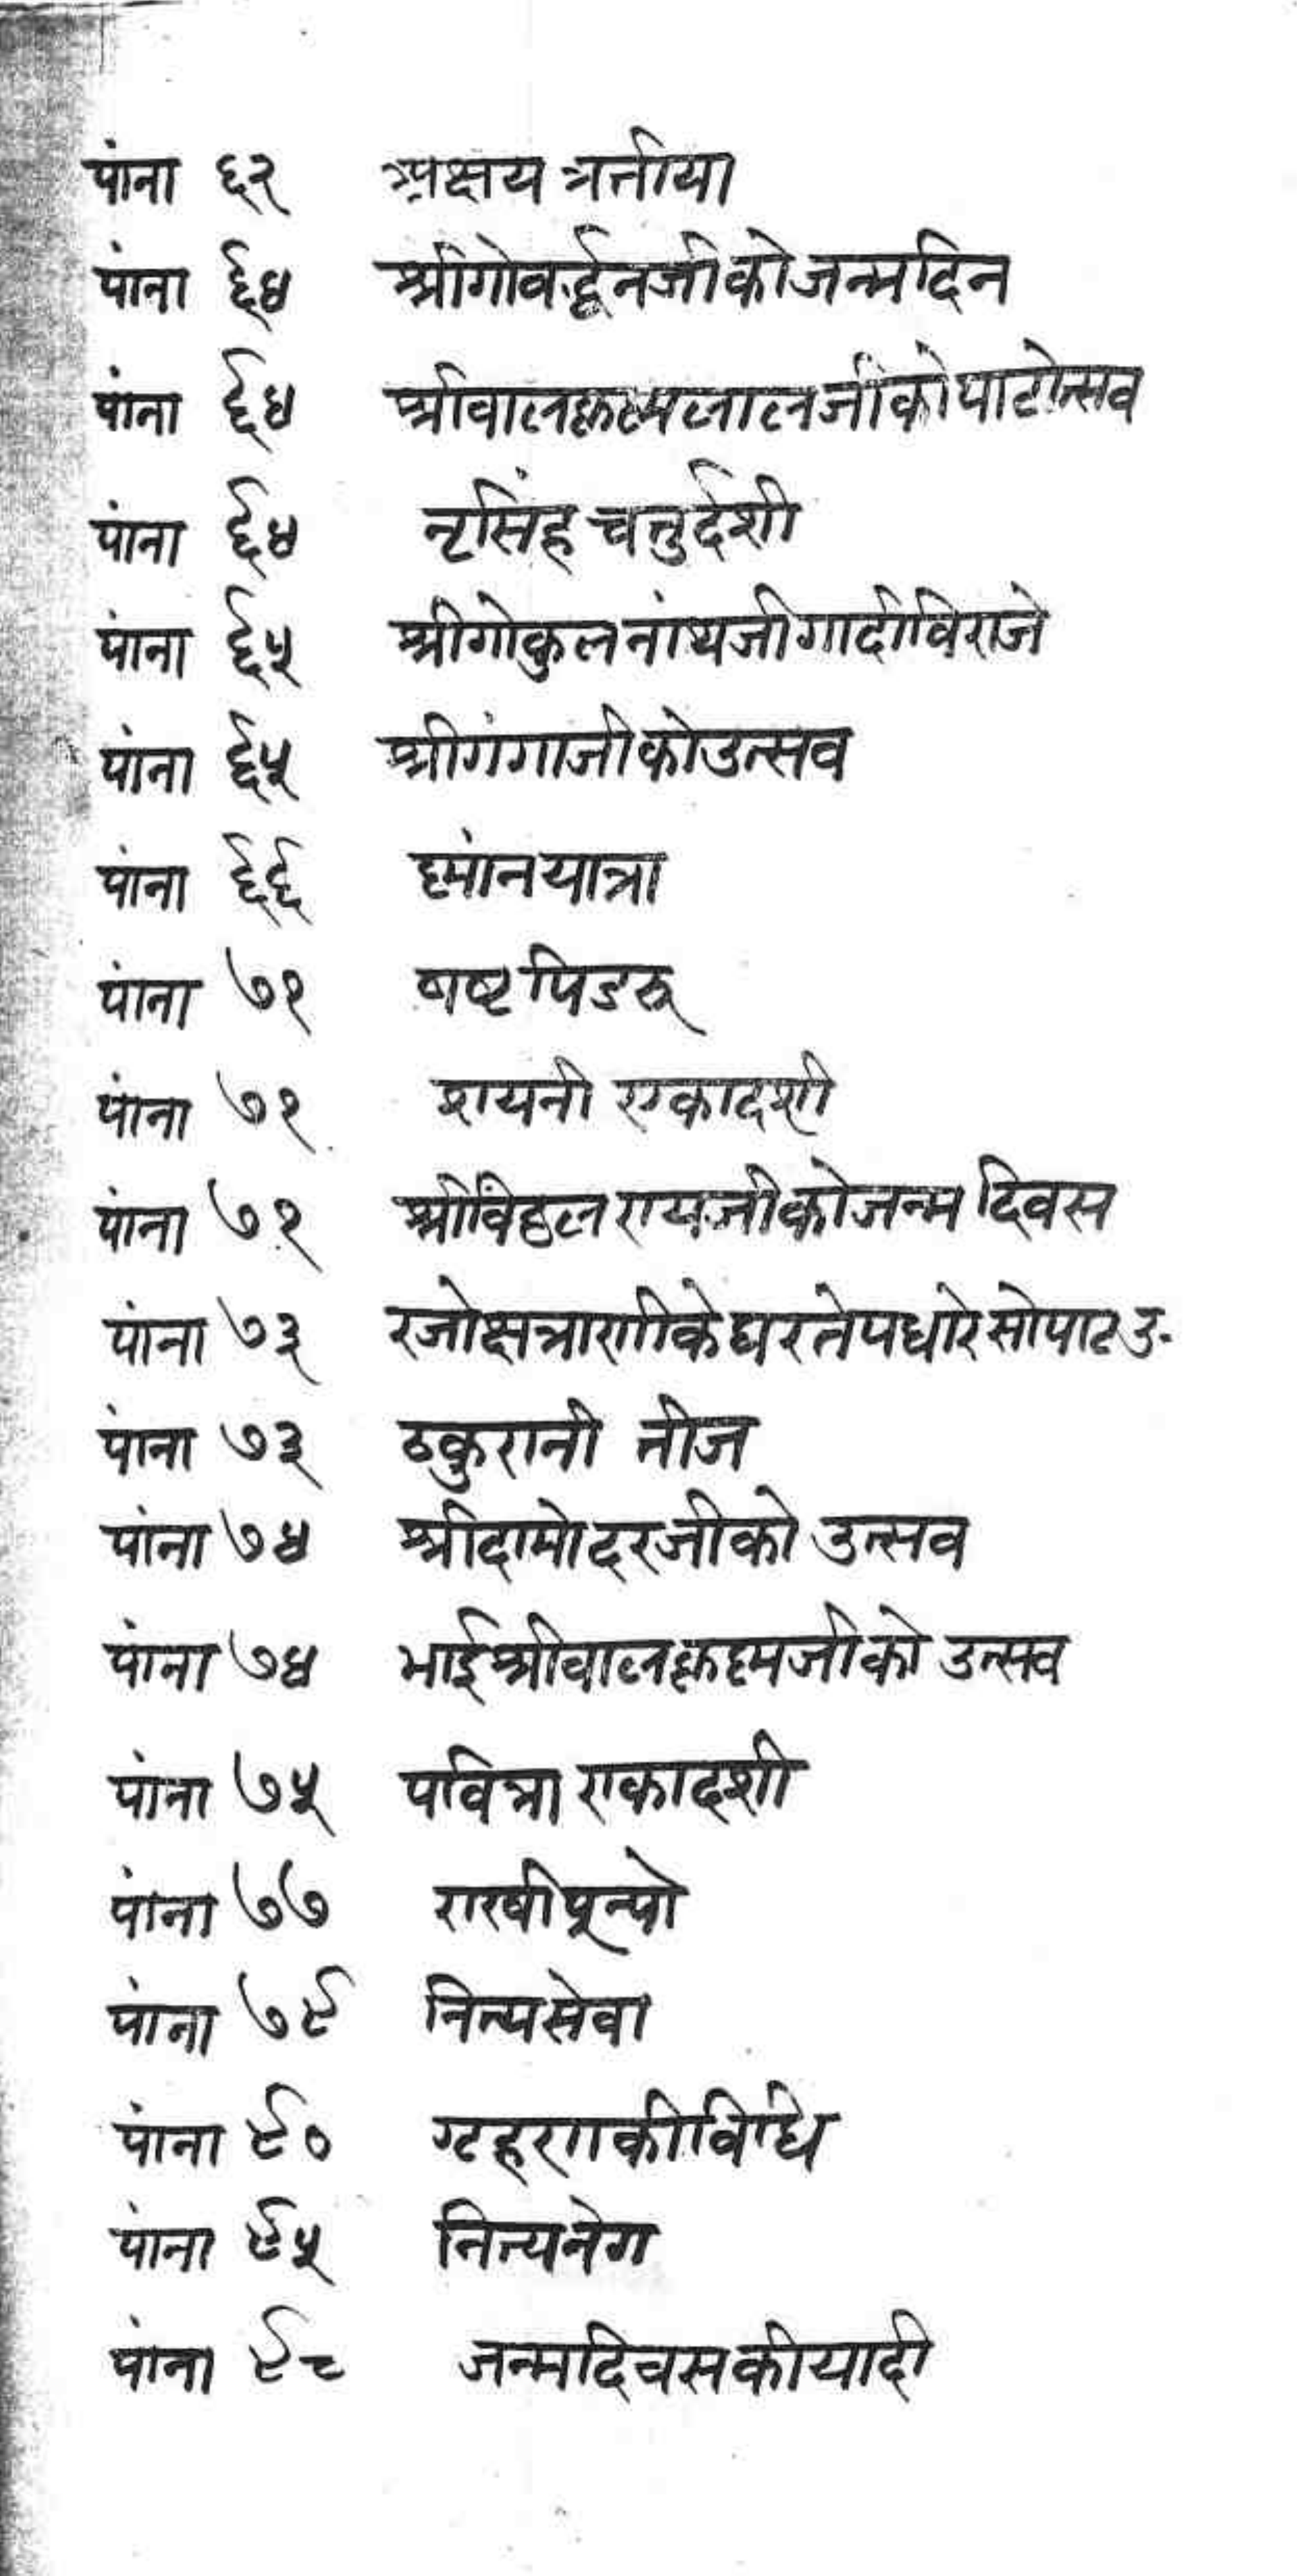 पांना ६२ अक्षय त्रतीया
पांना ६४ श्रीगोवर्द्धनजीको जन्मदिन
पांना ६४ श्रीबालकृष्णलालजीको पाटोत्सव
पांना ६४ नृसिंह चतुर्दशी
पांना ६५ श्रीगोकुलनांथजी गादी विराजे
पांना ६५ श्रीगंगाजीको उत्सव
पांना ६६ स्नांन यात्रा
पांना ७१ षष्ट पिडरू
पांना ७१ शयनी एकादशी
पांना ७१ श्रीविठ्ठलरायजीको जन्म दिवस
पांना ७३ रजोक्षत्राणीके घरते पधारे सो पाट उ.
पांना ७३ ठकुरानी तीज
पांना ७४ श्रीदामोदरजीको उत्सव
पांना ७४ भाई श्रीबालकृष्णजीको उत्सव
पांना ७५ पवित्रा एकादशी
पांना ७७ राखी पून्यो
पांना ७९ नित्यसेवा
पांना ९० ग्रहणकी विधि
पांना ९५ नित्यनेग
पांना ९८ जन्मदिवसकी यादी